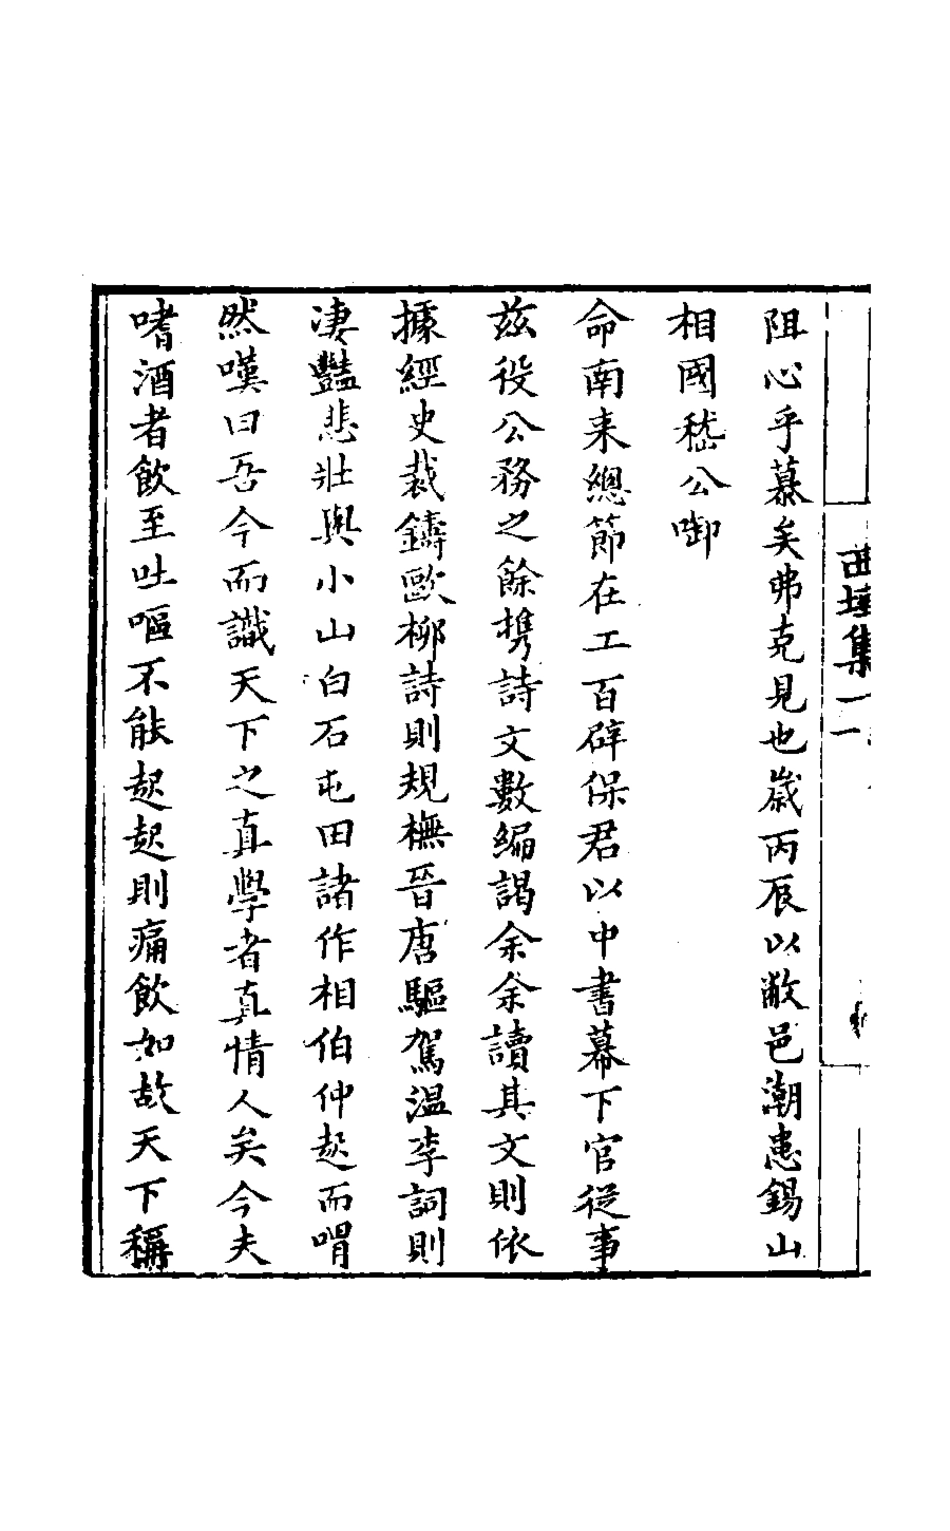 阻心乎慕矣弗克見也歲丙辰以敝邑潮患錫山
相國嵇公啣
命南来總節在工百辟保君以中書幕下官從事
茲役公務之餘携詩文數編謁余余讀其文則依
據經史裁鑄歐柳詩則規橅晉唐驅駕温李詞則
凄豔悲壯與小山白石屯田諸作相伯仲起而喟
然嘆曰吾今而識天下之真學者真情人矣今夫
嗜酒者飲至吐嘔不能起起則痛飲如故天下稱